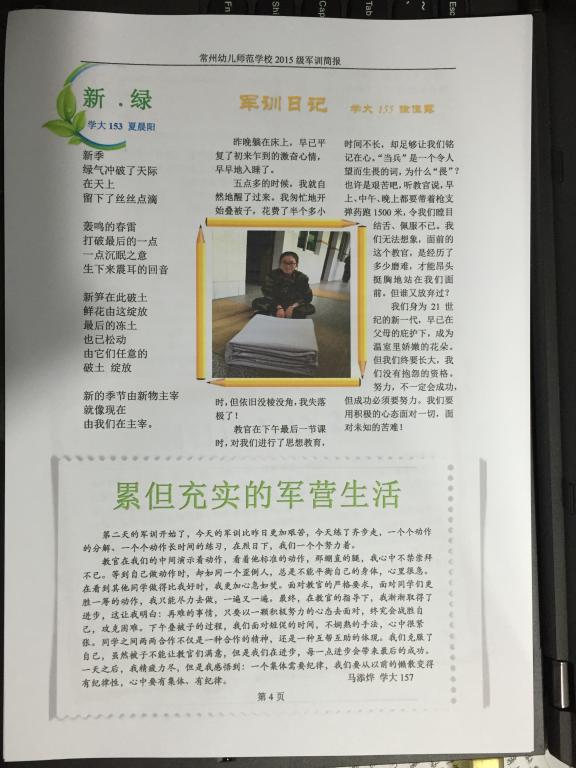 常州幼儿师范学校 2015 级军训简报
新 . 绿
学大 153 夏晨阳
新季
绿气冲破了天际
在天上
留下了丝丝点滴
轰鸣的春雷
打破最后的一点
一点沉眠之意
生下来震耳的回音
新笋在此破土
鲜花由这绽放
最后的冻土
也已松动
由它们任意的
破土 绽放
新的季节由新物主宰
就像现在
由我们在主宰。
军训日记
学大 153
昨晚躺在床上，早已平
复了初来乍到的激奋心情，
早早地入睡了。
五点多的时候，我就自
然地醒了过来。我匆忙地开
始叠被子，花费了半个多小
时，但依旧没棱没角，我失落
极了！
教官在下午最后一节课
时，对我们进行了思想教育，
时间不长，却足够让我们铭
记在心。“当兵”是一个令人
望而生畏的词，为什么“畏”？
也许是艰苦吧，听教官说，早
上、中午、晚上都要带着枪支
弹药跑 1500 米，令我们瞠目
结舌、佩服不已。我
们无法想象，面前的
这个教官，是经历了
多少磨难，才能昂头
挺胸地站在我们面
前。但谁又放弃过？
我们身为 21 世
纪的新一代，早已在
父母的庇护下，成为
温室里娇嫩的花朵。
但我们终要长大，我
们没有抱怨的资格。
努力，不一定会成功，
但成功必须要努力。我们要
用积极的心态面对一切，面
对未知的苦难！
累但充实的军营生活
第二天的军训开始了，今天的军训比昨日更加艰苦，今天练了齐步走，一个个动作
的分解、一个个动作长时间的练习，在烈日下，我们一个个努力着。
教官在我们的中间演示着动作，看着他标准的动作，那绷直的腿，我心中不禁崇拜
不已。等到自己做动作时，却如同一个歪倒人，总是不能平衡自己的身体，心里很急。
在看到其他同学做得比我好时，我更加心急如焚。面对教官的严格要求，面对同学们更
胜一筹的动作，我只能尽力去做，一遍又一遍。最终，在教官的指导下，我渐渐取得了
进步，这让我明白：再难的事情，只要以一颗积极努力的心态去面对，终究会战胜自
己，攻克困难。下午叠被子的过程，我们面对短促的时间，不娴熟的手法，心中很紧
张。同学之间两两合作不仅是一种合作的精神，还是一种互帮互助的体现。我们克服了
自己，虽然被子不能让教官们满意，但是我们在进步，每一点进步会带来最后的成功。
一天之后，我精疲力尽，但是我感悟到：一个集体需要纪律，我们要从以前的懒散变得
有纪律性，心中要有集体、有纪律。
马添烨 学大 157
第 4 页